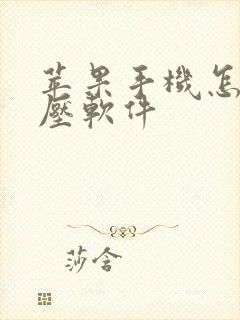 苹果手機怎
壓軟件
莎含